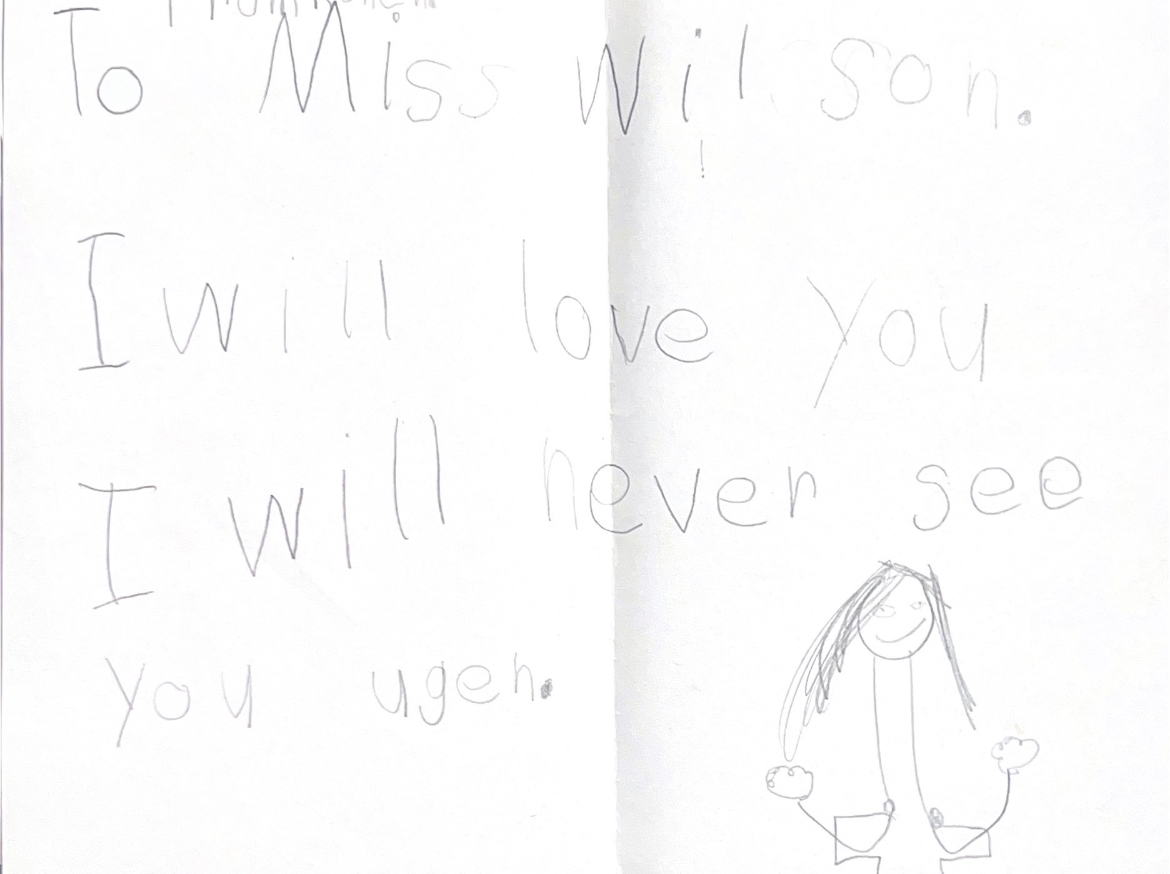 To Miss Wilson.
I will love you
I will never see
you ugen.